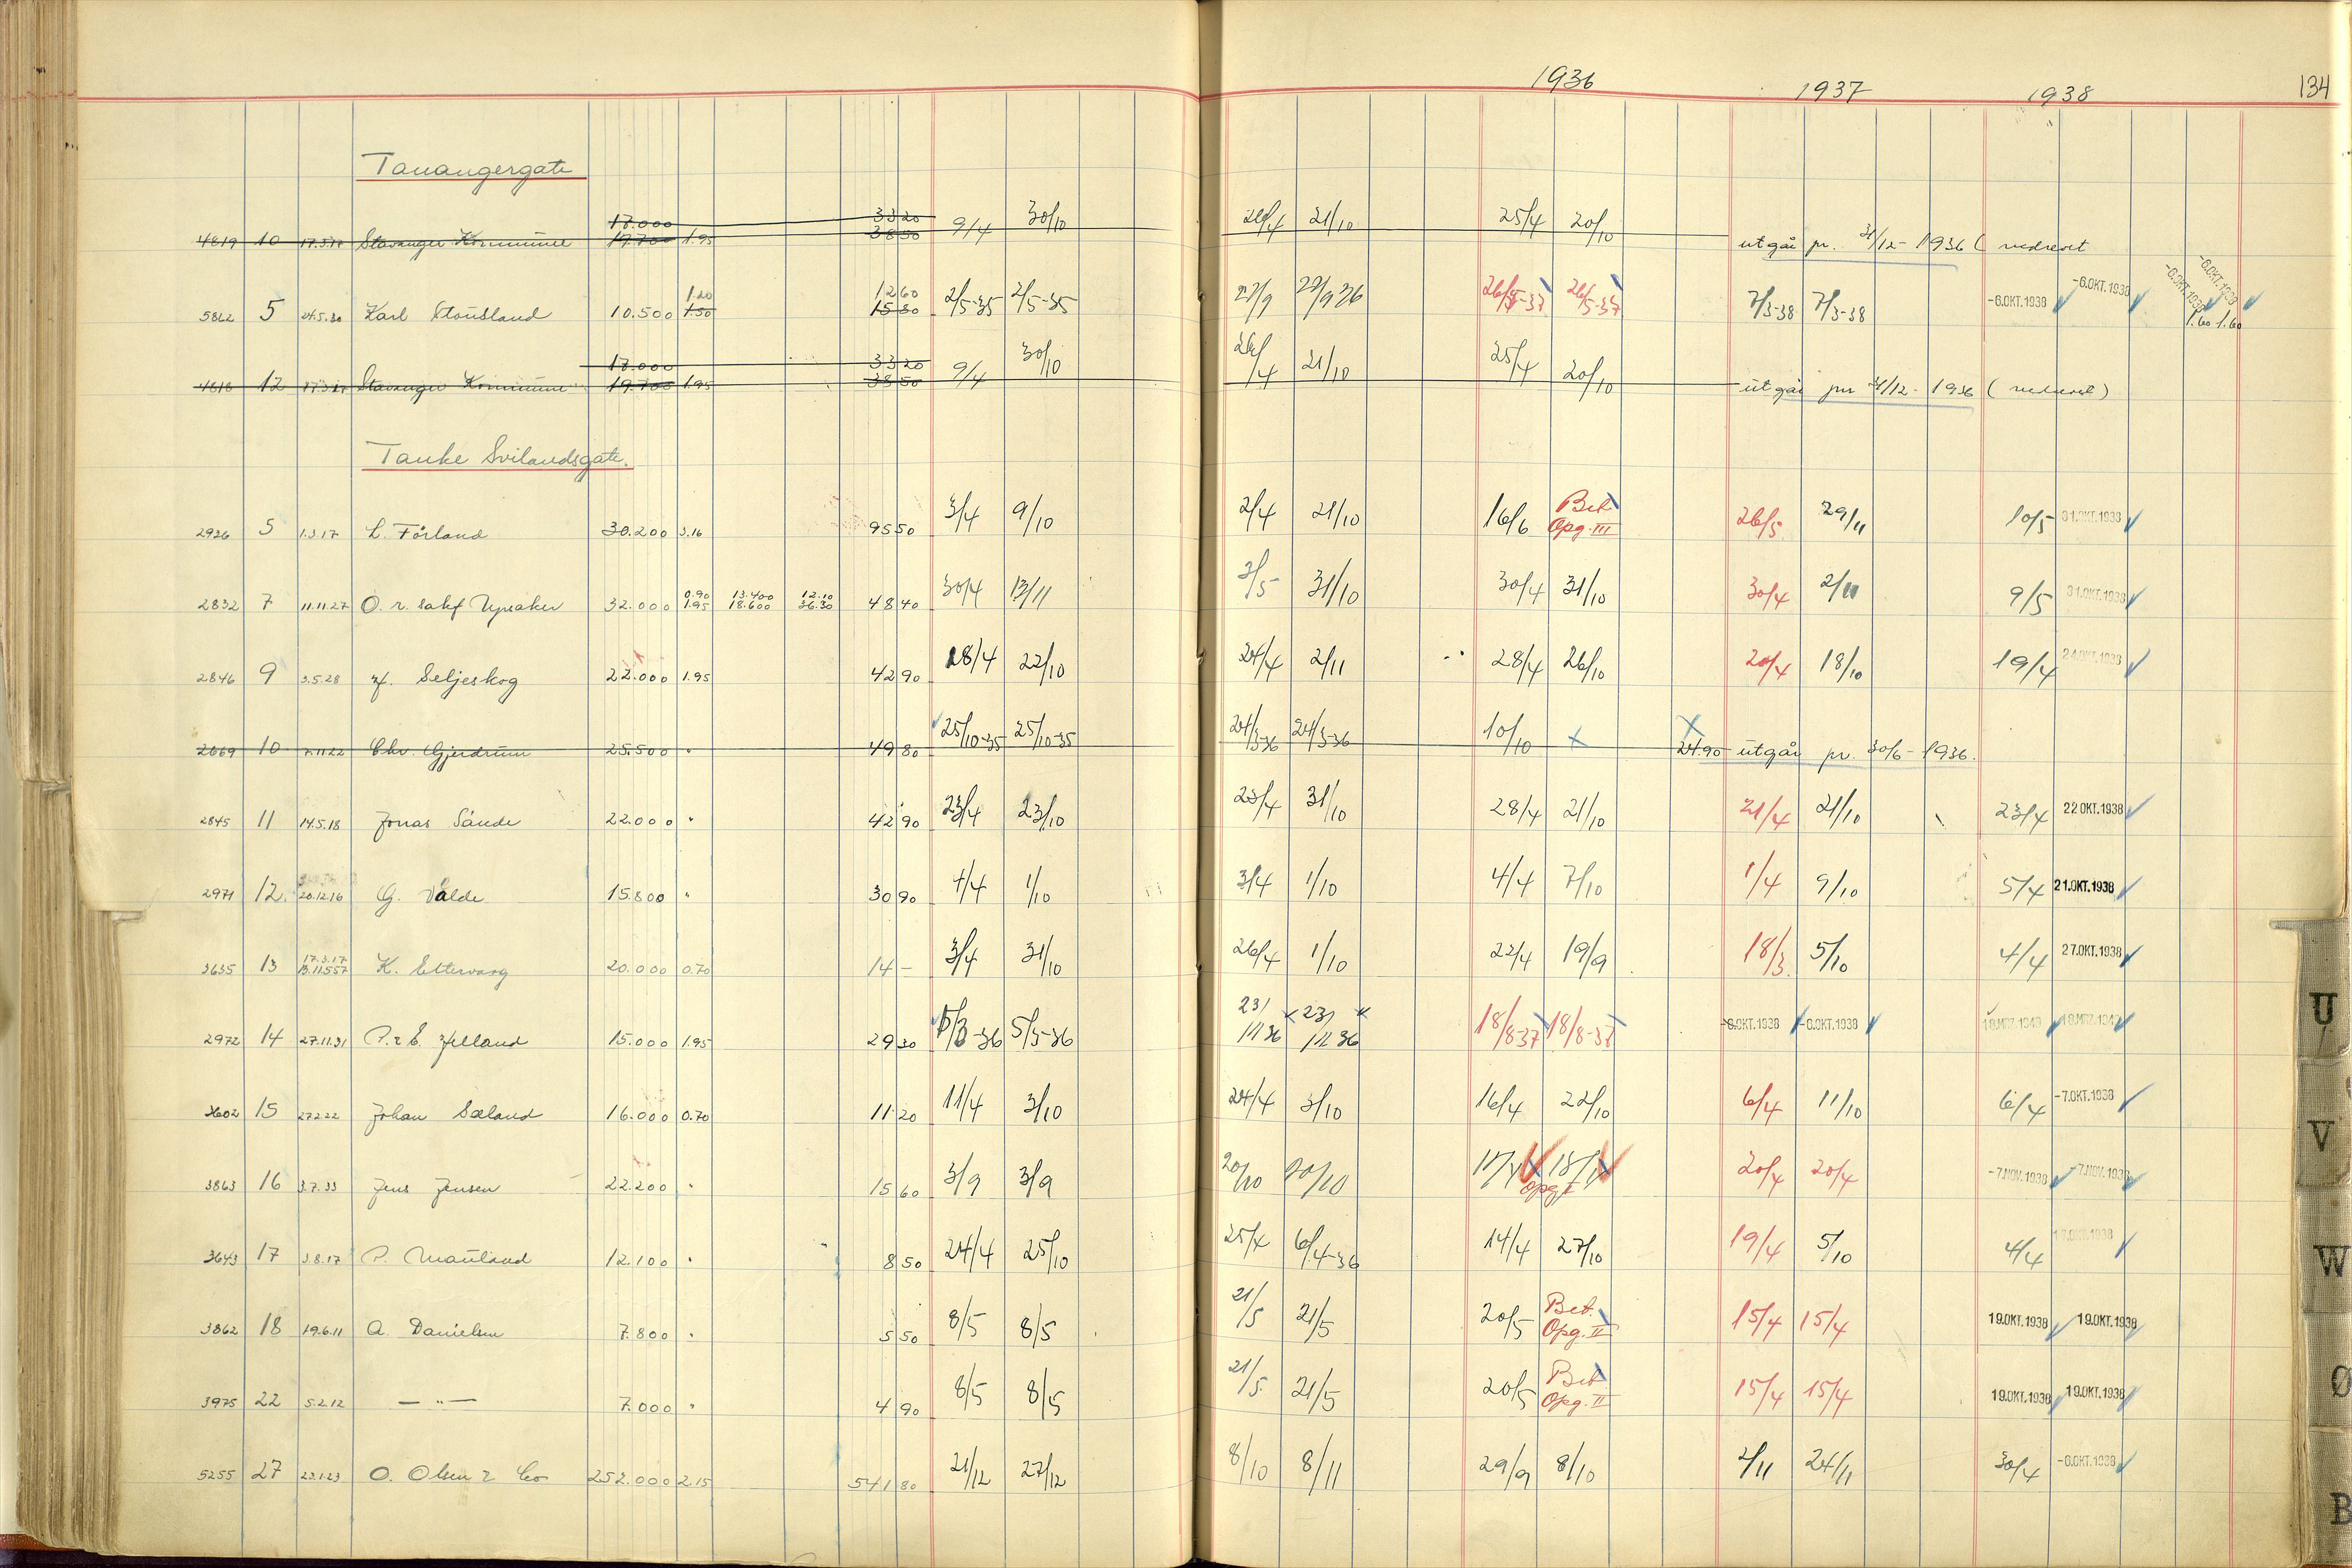 1936 1937 1938 134
Tanangergate
17.000 33 20
4819 10 17.3.17 Stavanger Kommune 19.700 1.95 38 50 9/4 30/10 21/10 25/4 20/10 utgår pr. 31/12-1936 ( nedrevet
1.20 12 60 -6.OKT.1938 -6.OKT.1938
5862 5 24.5.30 Karl Stousland 10.500 1.50 15 80 2/5-35 2/5-35 27/9 27/9 36 26/5-37 26/5-37 7/3-38 7/3-38 -6.OKT.1938 -6.OKT.1938 1.60 1.60
17.000 33 20
4818 12 17.3.17 Stavanger Kommune 19.700 1.95 38 50 9/4 30/10 26/4 21/10 25/4 20/10 utgår pr 31/12-1936 ( nedrevet )
Tanke Svilandsgate.
2926 5 1.3.17 L. Förland 30.200 3.16 95 50 3/4 9/10 2/4 21/10 16/6 Bet. Opg. III 26/5 29/11 10/5 31.OKT.1938
0.90 13.400 12.10
2832 7 11.11.27 O. r. Jakf 32.000 1.95 18.600 36.30 48 40 30/4 13/11 3/5 31/10 30/4 31/10 30/4 2/11 9/5 31.OKT.1938
2846 9 3.5.28 Seljeskog 22.000 1.95 42 90 28/4 22/10 24/4 2/11 28/4 26/10 20/4 18/10 19/4 24.OKT.1938
2669 10 7.11.22 Chr. Gjerdrum 25.500 " 49 80 25/10-35 25/10-35 24/3-36 24/3-36 10/10 x x 24.90 utgår pr. 30/6-1936.
2845 11 14.5.18 Jonas Sande 22.000 " 42 90 23/4 23/10 23/4 31/10 28/4 21/10 21/4 21/10 23/4 22 OKT.1938
2971 12 20.12.16 G. Válde 15.800 " 30 90 4/4 1/10 3/4 1/10 4/4 7/10 1/4 9/10 5/4 21.OKT.1938
17.3.17
3635 13 K. Ettervaag 20.000 0.70 14 – 3/4 31/10 26/4 1/10 22/4 19/9 18/3 5/10 4/4 27.OKT.1938
2972 14 27.11.31 P. & E. Jelland 15.000 1.95 29 30 5/3-36 5/3-36 23/11 36 x 23/11 36 x 18/8-37 18/8-37 -6.OKT.1938 -6.OKT.1938 18.MRZ.1940 18.MRZ.1940
3602 15 27.2.22 Johan Sæland 16.000 0.70 11 20 11/4 3/10 24/4 3/10 16/4 22/10 6/4 11/10 6/4 -7.OKT.1938
3863 16 3.7.33 Jens Jensen 22.200 " 15 60 3/9 3/9 20/10 20/10 20/4 20/4 -7.NOV.1938 -7.NOV.1938
3643 17 3.8.17 P. Mauland 12.100 " 8 50 24/4 25/10 25/4 6/4-36 14/4 27/10 19/4 5/10 4/4
3862 18 19.6.11 A. Danielsen 7.800 " 5 50 8/5 8/5 21/5 21/5 20/5 Bet. Opg. II 15/4 15/4 19.OKT.1938 19.OKT.1938
3975 22 5.2.12 — " — 7.000 " 4 90 8/5 8/5 21/5 21/5 20/5 Bet. Opg. II 15/4 15/4 19.OKT.1938 19.OKT.1938
5255 27 22.1.23 O. Olsen & Co 252.000 2.15 541 80 21/12 27/12 8/10 8/11 29/9 8/10 2/11 24/11 30/4 -6.OKT.1938
U
V
W
Ø
B